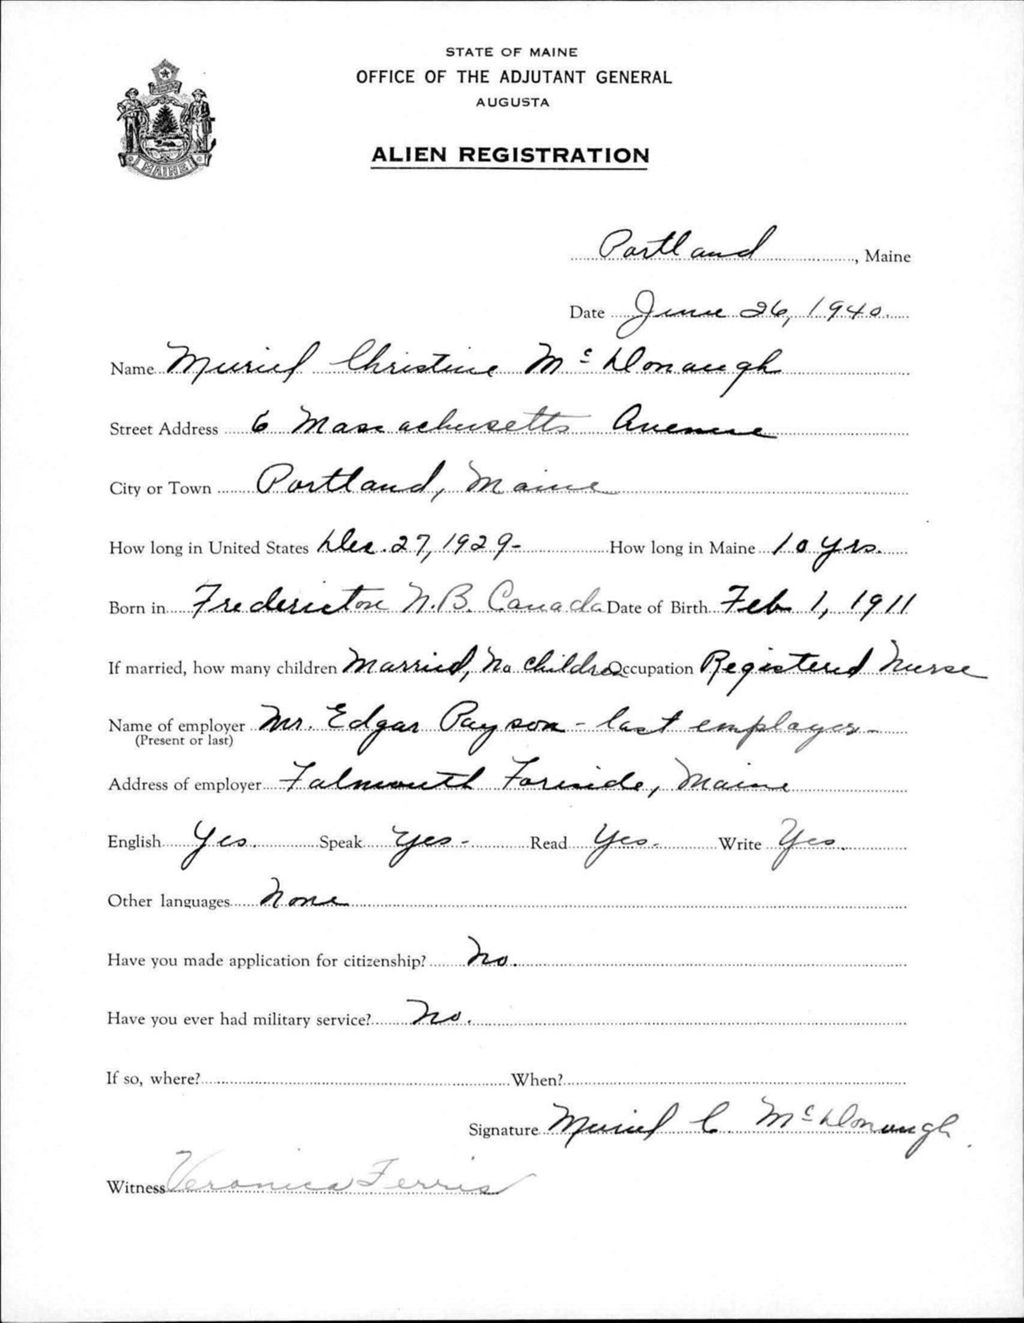 STATE OF MAINE
OFFICE OF THE ADJUTANT GENERAL
AUGUSTA
ALIEN REGISTRATION
MAINE
Portland, Maine
Date June 26, 1940.
Name Muriel Christine McDonaugh
Street Address 6 Massachusetts Avenue
City or Town Portland, Maine
How long in United States Dec. 27, 1929- How long in Maine 10 yrs.
Born in Fredericton N.B. Canada Date of Birth Feb 1, 1911
If married, how many children Married, No children Occupation Registered Nurse
Name of employer Mr. Edgar Payson - last employer -
(Present or last)
Address of employer Falmouth Foreside, Maine
English Yes. Speak Yes - Read Yes. Write Yes.
Other languages None
Have you made application for citizenship? No.
Have you ever had military service? No.
If so, where? When?
Signature Muriel C. McDonaugh
Witness Veronica Ferris